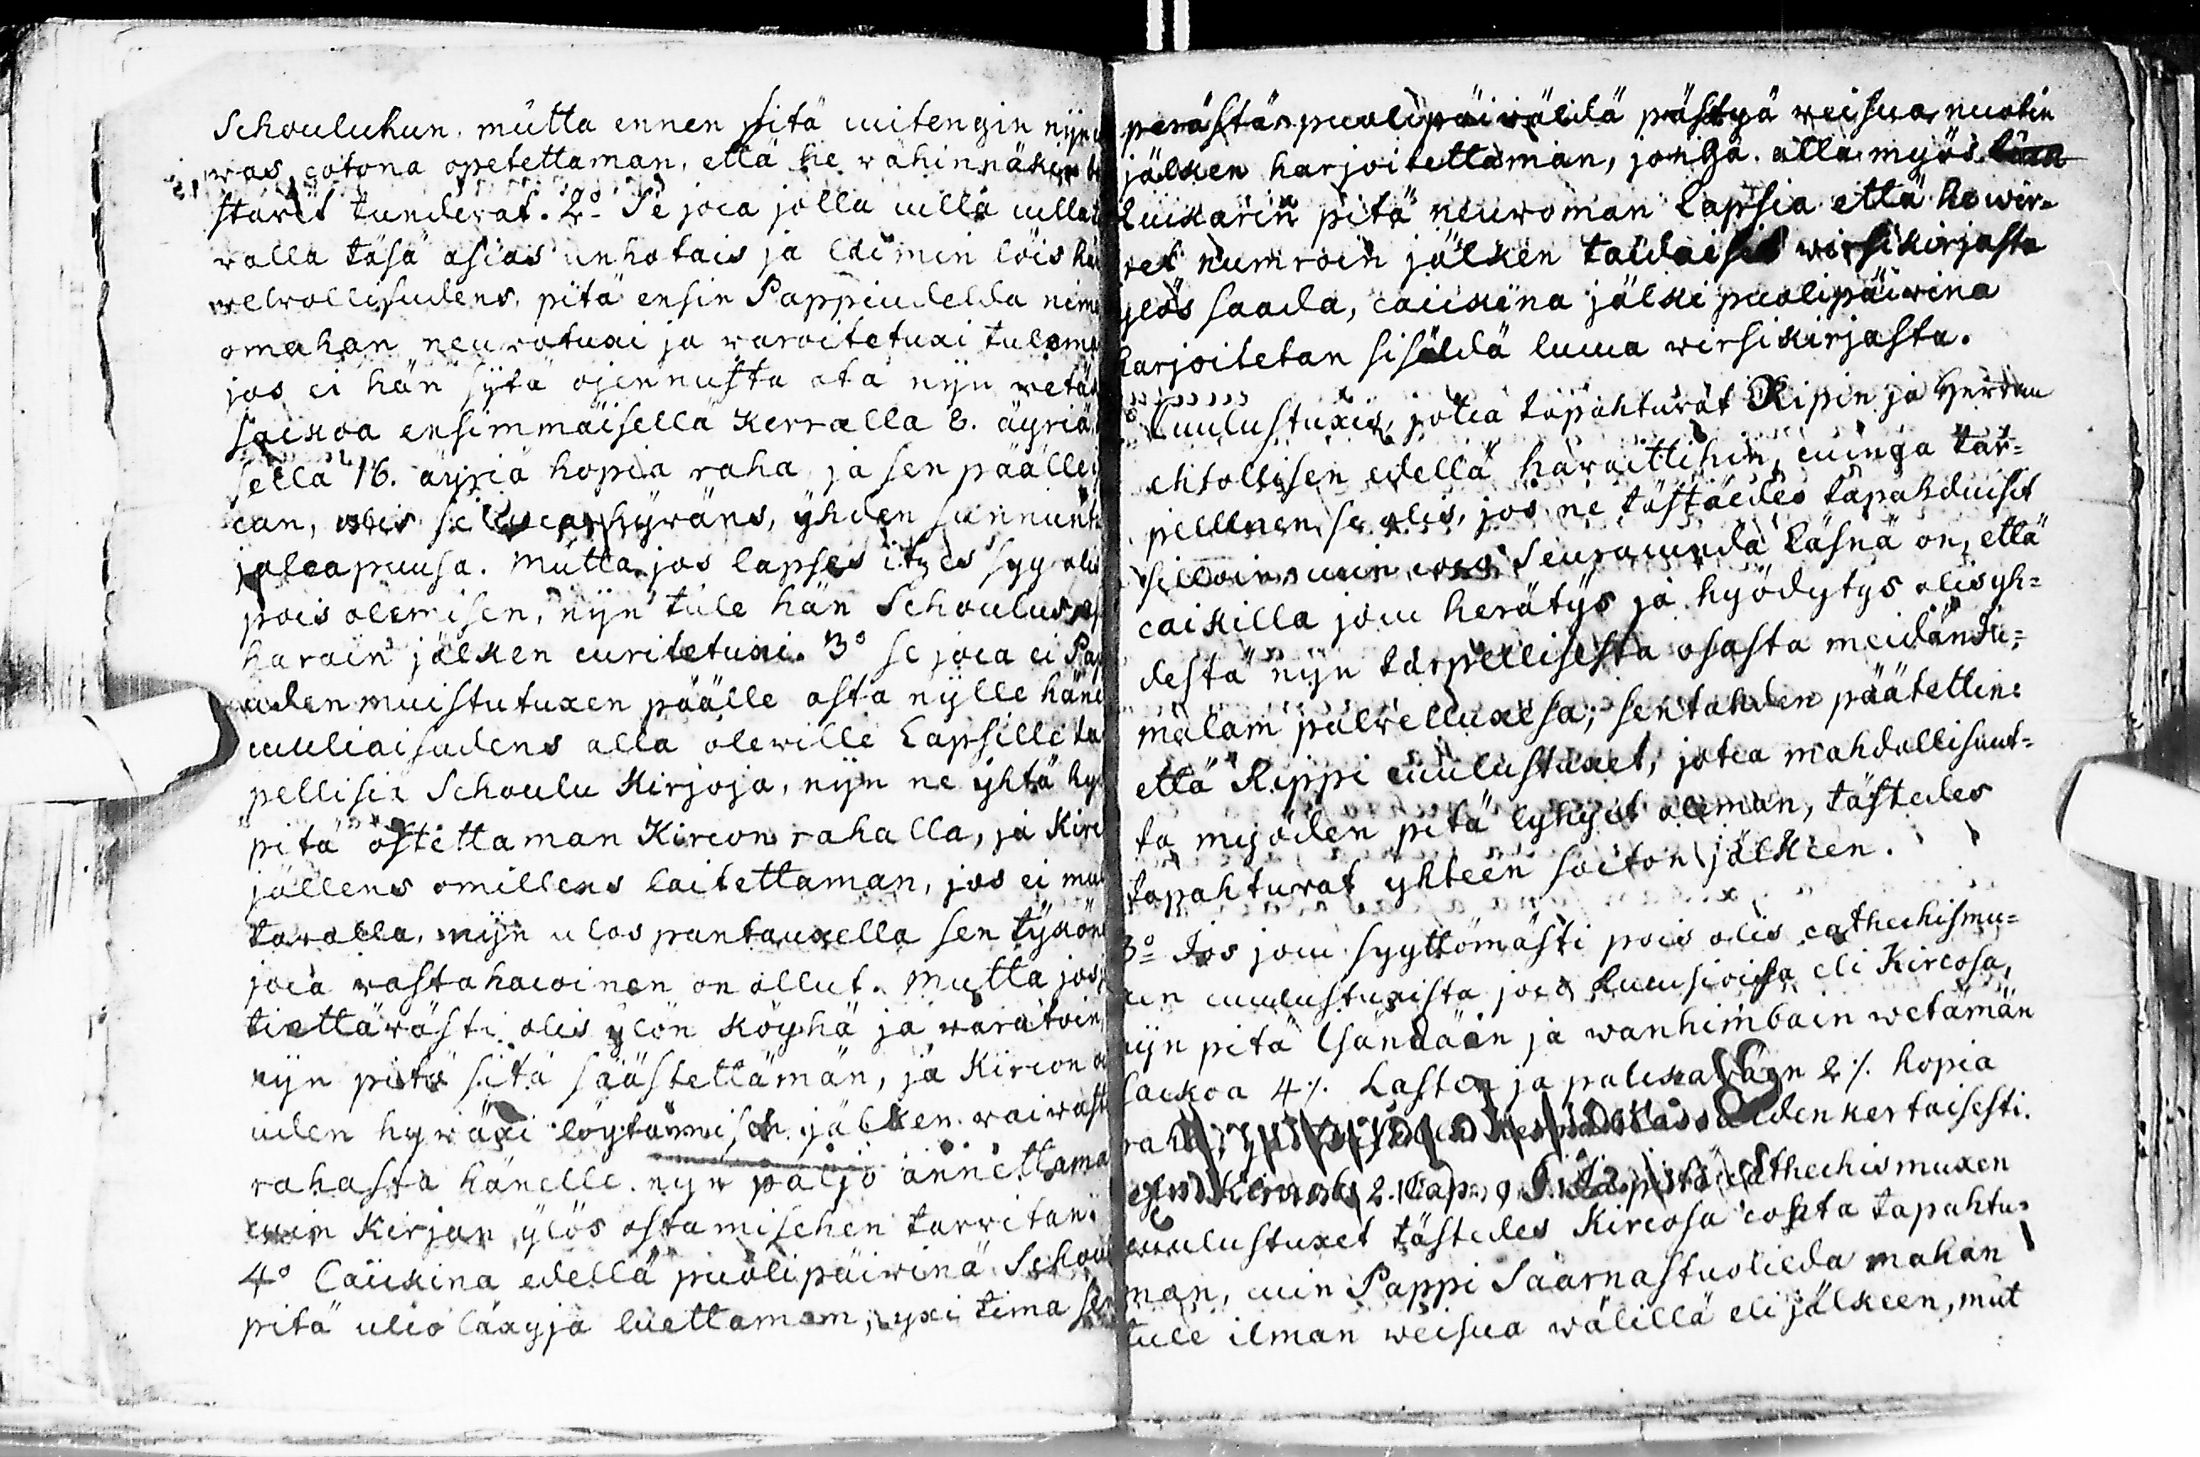 Schouluhun. mutta ennen sitä cuitengin nijn
was, cotona opetettaman, että he wähinnäkin
stawit tundewat. 2:o Se joca jolla cullä culla
walla täsä asias unhotais ja laimin löis
welwollisudens, pitä ensin Pappiudelda nim
omahan neuwotuxi ja waroitetuxi tulema
jos ei hän sijtä ojennusta ota nijn wetä
sackoa ensimmäisellä Kerralla 8. äyriä
sella 16. äyriä hopia raha, ja sen päälle
can, yhden sunnunt
jalcapuusa. Mutta jos lapses itzes syy olis
pois olemisen, nijn tule hän Schoulus
harain jälken curitetuxi. 3:o se joca ei Pap
uden muistutuxen päälle osta nijlle häne
cuuliaisudens alla olewille Lapsille ta
pellisia Schoulu Kirjoja, nijn ne yhtä hy
pitä ostettaman Kircon rahalla, ja Kirc
jällens omillens laitettaman, jos ei mu
tawalla, nijn ulos pantauxella sen tykön
joca wastahacoinen on ollut. Mutta jos
tiettäwästi olis ylön köyhä ja warátoin
nijn pitä sitä säästettämän, ja Kircon
uden hywäxi löytämisen jälken waiwast
rahasta hänelle nijn paljo annettama
cuin Kirjan ylös ostamisehen tarwitan.
4:o Caickina edellä puolipäiwinä Schou
pitä ulco läxyjä luettaman, yxi tima
perästä puolipäiwäldä pästyä weisua, nuotin
jälken harjoitettaman, jonga. alla myös
Luckarin pitä neuwoman Lapsia että he wir=
ret numroin jälken taidaisit wirsikirjasta
ylös saada, caickina jälki puolipäiwinä
harjoitetan sisäldä lucua wirsikirjasta.
Cuulustuxis, jotca tapahtuwat Ripin ja Herran
ehtollisen edellä hawaittihin, cuinga tar=
pellinen se olis, jos ne tästäedes tapahduisit
silloin cuin coco Seuracunda läsnä on, että
caikilla jocu herätys ja hyödytys olis yh=
destä nijn tarpellisesta osasta meidän Ju=
malam palwelluxesa; sentähden päätettin:
että Rippi cuulustuxet, jotca mahdollisuut=
ta myöden pitä lyhyet oleman, tästedes
tapahtuwat yhteen soiton jälkeen.
3:o Jos jocu syyttömästi pois olis cathechismu=
xen cuulustuxista joco Lucusioisa eli Kircosa,
nijn pitä Isändäin ja wanhimbain wetämän
sackoa 4 %. Lasten ja palckawäen 2 %. hopia
raha edenkertaisesti.
2. Cap: 9 §. Ja pitä Cathechismuxen
cuulustuxet tästedes Kircosa cohta tapahtu=
man, cuin Pappi Saarnastuolilda mahan
tule ilman weisua wälillä eli jälkeen, mut